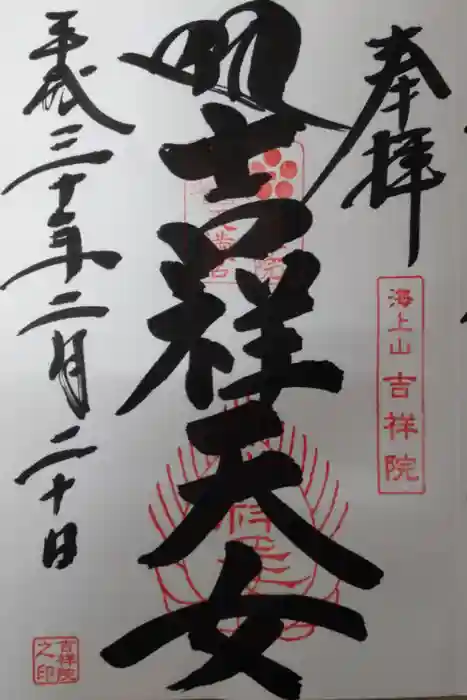 奉拝
海上山 吉祥院
吉祥天女
平成三十年二月二十日
吉祥院
之印